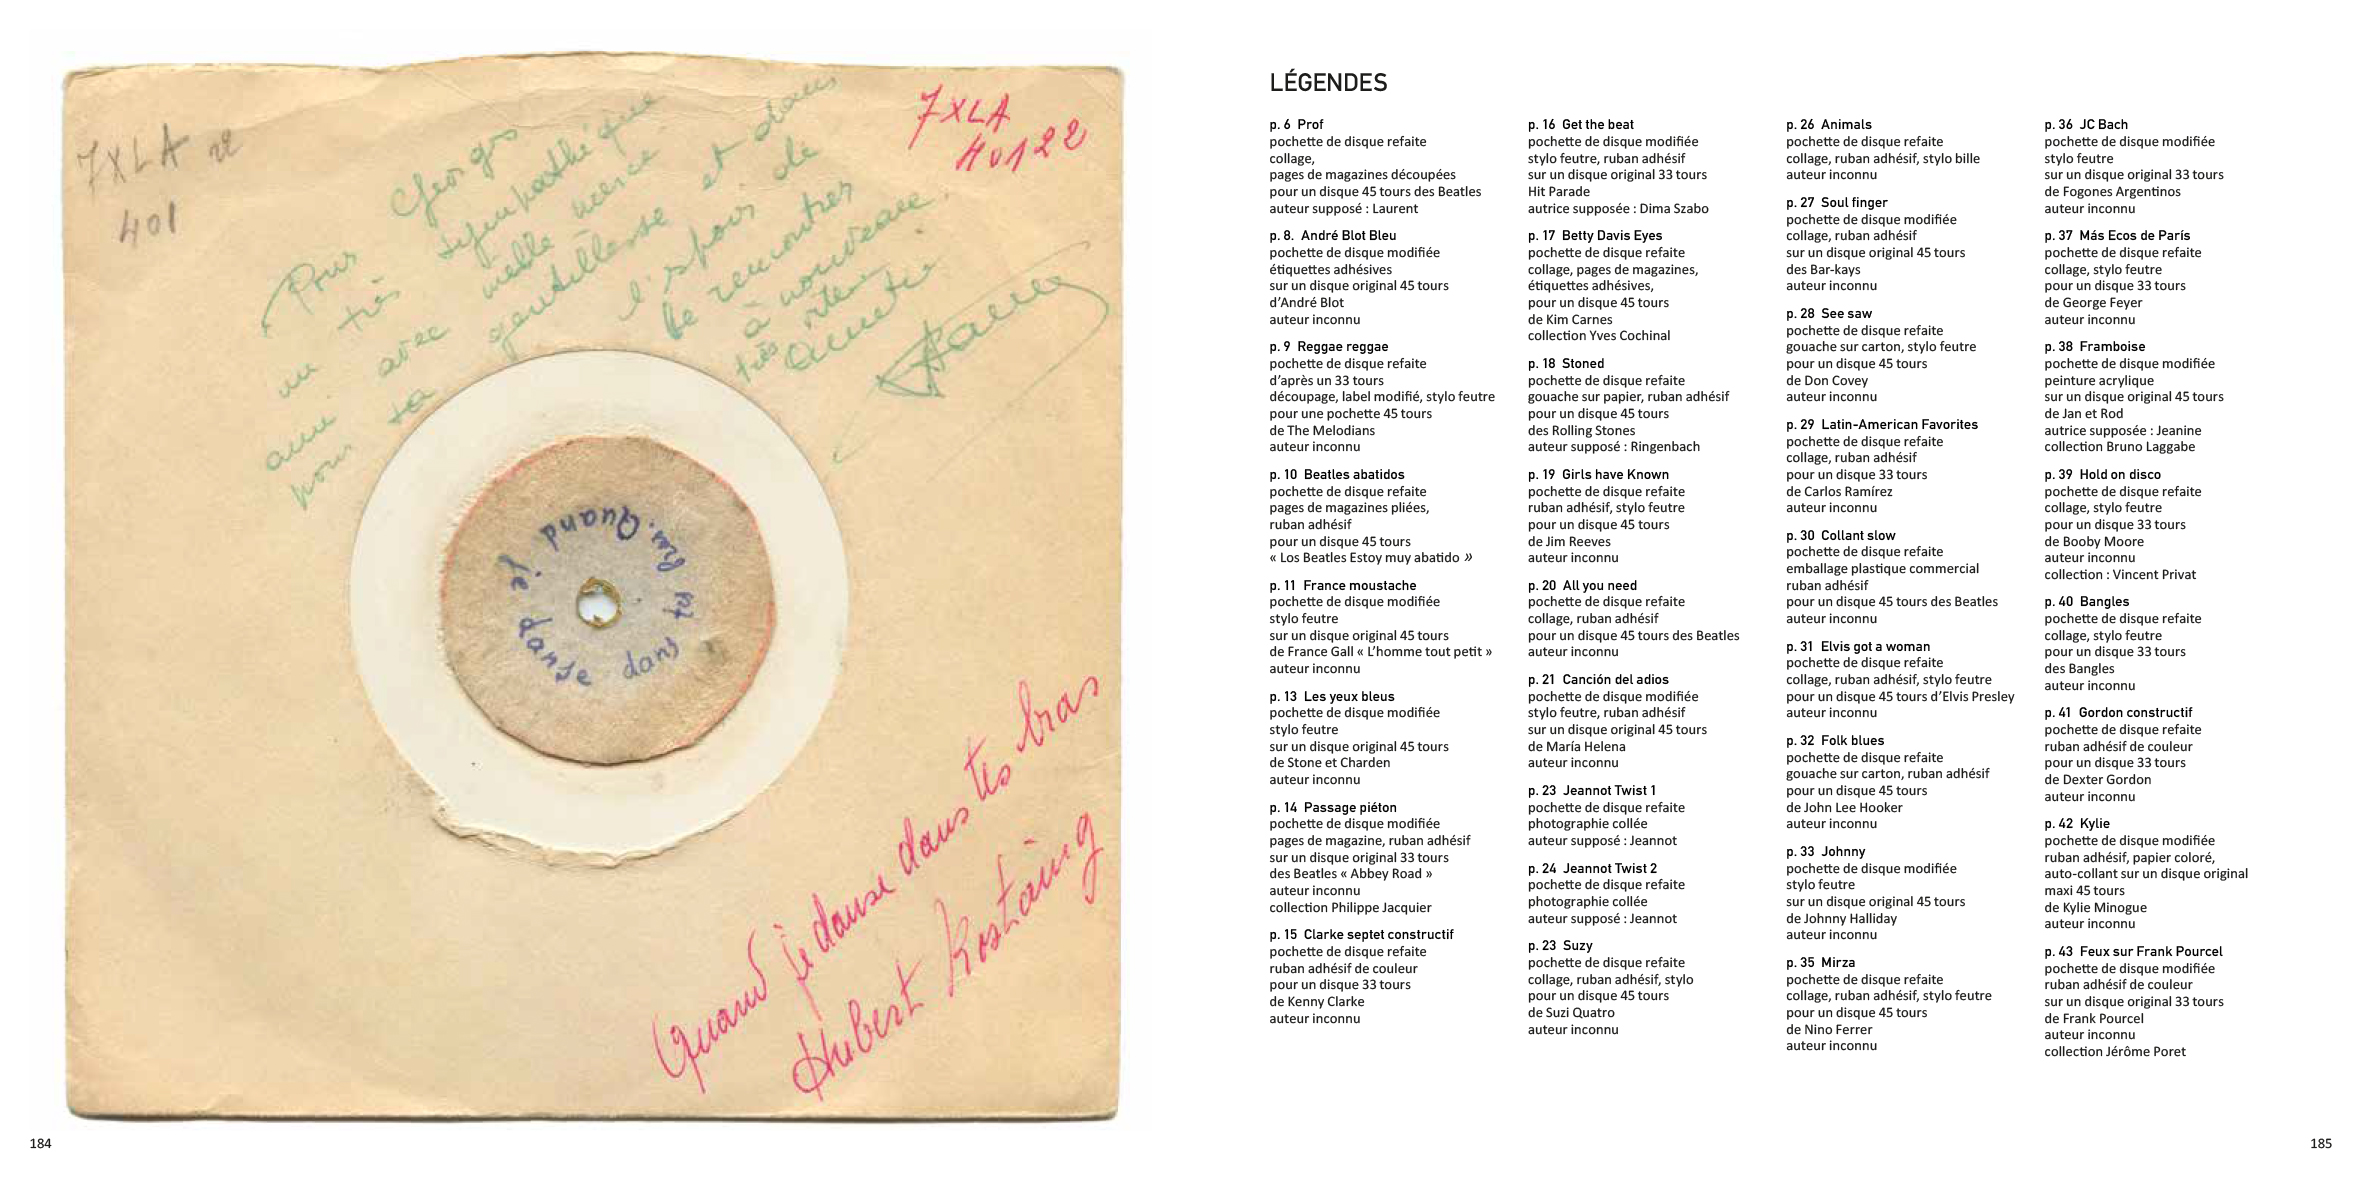 7XLA
401
7XLA
40122
Pour Georges
un très sympathique
ami avec mille merci
pour ta gentillesse et dans
l'espoir de
te rencontrer
à nouveau.
très
Quand je danse dans tes bras.
Quand je danse dans tes bras
Hubert Rostaing
184
LÉGENDES
p. 6 Prof
pochette de disque refaite
collage,
pages de magazines découpées
pour un disque 45 tours des Beatles
auteur supposé : Laurent
p. 8. André Blot Bleu
pochette de disque modifiée
étiquettes adhésives
sur un disque original 45 tours
d’André Blot
auteur inconnu
p. 9 Reggae reggae
pochette de disque refaite
d’après un 33 tours
découpage, label modifié, stylo feutre
pour une pochette 45 tours
de The Melodians
auteur inconnu
p. 10 Beatles abatidos
pochette de disque refaite
pages de magazines pliées,
ruban adhésif
pour un disque 45 tours
« Los Beatles Estoy muy abatido »
p. 11 France moustache
pochette de disque modifiée
stylo feutre
sur un disque original 45 tours
de France Gall « L’homme tout petit »
auteur inconnu
p. 13 Les yeux bleus
pochette de disque modifiée
stylo feutre
sur un disque original 45 tours
de Stone et Charden
auteur inconnu
p. 14 Passage piéton
pochette de disque modifiée
pages de magazine, ruban adhésif
sur un disque original 33 tours
des Beatles « Abbey Road »
auteur inconnu
collection Philippe Jacquier
p. 15 Clarke septet constructif
pochette de disque refaite
ruban adhésif de couleur
pour un disque 33 tours
de Kenny Clarke
auteur inconnu
p. 16 Get the beat
pochette de disque modifiée
stylo feutre, ruban adhésif
sur un disque original 33 tours
Hit Parade
autrice supposée : Dima Szabo
p. 17 Betty Davis Eyes
pochette de disque refaite
collage, pages de magazines,
étiquettes adhésives,
pour un disque 45 tours
de Kim Carnes
collection Yves Cochinal
p. 18 Stoned
pochette de disque refaite
gouache sur papier, ruban adhésif
pour un disque 45 tours
des Rolling Stones
auteur supposé : Ringenbach
p. 19 Girls have Known
pochette de disque refaite
ruban adhésif, stylo feutre
pour un disque 45 tours
de Jim Reeves
auteur inconnu
p. 20 All you need
pochette de disque refaite
collage, ruban adhésif
pour un disque 45 tours des Beatles
auteur inconnu
p. 21 Canción del adios
pochette de disque modifiée
stylo feutre, ruban adhésif
sur un disque original 45 tours
de María Helena
auteur inconnu
p. 23 Jeannot Twist 1
pochette de disque refaite
photographie collée
auteur supposé : Jeannot
p. 24 Jeannot Twist 2
pochette de disque refaite
photographie collée
auteur supposé : Jeannot
p. 23 Suzy
pochette de disque refaite
collage, ruban adhésif, stylo
pour un disque 45 tours
de Suzi Quatro
auteur inconnu
p. 26 Animals
pochette de disque refaite
collage, ruban adhésif, stylo bille
auteur inconnu
p. 27 Soul finger
pochette de disque modifiée
collage, ruban adhésif
sur un disque original 45 tours
des Bar-kays
auteur inconnu
p. 28 See saw
pochette de disque refaite
gouache sur carton, stylo feutre
pour un disque 45 tours
de Don Covey
auteur inconnu
p. 29 Latin-American Favorites
pochette de disque refaite
collage, ruban adhésif
pour un disque 33 tours
de Carlos Ramírez
auteur inconnu
p. 30 Collant slow
pochette de disque refaite
emballage plastique commercial
ruban adhésif
pour un disque 45 tours des Beatles
auteur inconnu
p. 31 Elvis got a woman
pochette de disque refaite
collage, ruban adhésif, stylo feutre
pour un disque 45 tours d’Elvis Presley
auteur inconnu
p. 32 Folk blues
pochette de disque refaite
gouache sur carton, ruban adhésif
pour un disque 45 tours
de John Lee Hooker
auteur inconnu
p. 33 Johnny
pochette de disque modifiée
stylo feutre
sur un disque original 45 tours
de Johnny Halliday
auteur inconnu
p. 35 Mirza
pochette de disque refaite
collage, ruban adhésif, stylo feutre
pour un disque 45 tours
de Nino Ferrer
auteur inconnu
p. 36 JC Bach
pochette de disque modifiée
stylo feutre
sur un disque original 33 tours
de Fogones Argentinos
auteur inconnu
p. 37 Más Ecos de París
pochette de disque refaite
collage, stylo feutre
pour un disque 33 tours
de George Feyer
auteur inconnu
p. 38 Framboise
pochette de disque modifiée
peinture acrylique
sur un disque original 45 tours
de Jan et Rod
autrice supposée : Jeanine
collection Bruno Laggabe
p. 39 Hold on disco
pochette de disque refaite
collage, stylo feutre
pour un disque 33 tours
de Booby Moore
auteur inconnu
collection : Vincent Privat
p. 40 Bangles
pochette de disque refaite
collage, stylo feutre
pour un disque 33 tours
des Bangles
auteur inconnu
p. 41 Gordon constructif
pochette de disque refaite
ruban adhésif de couleur
pour un disque 33 tours
de Dexter Gordon
auteur inconnu
p. 42 Kylie
pochette de disque modifiée
ruban adhésif, papier coloré,
auto-collant sur un disque original
maxi 45 tours
de Kylie Minogue
auteur inconnu
p. 43 Feux sur Frank Pourcel
pochette de disque modifiée
ruban adhésif de couleur
sur un disque original 33 tours
de Frank Pourcel
auteur inconnu
collection Jérôme Poret
185